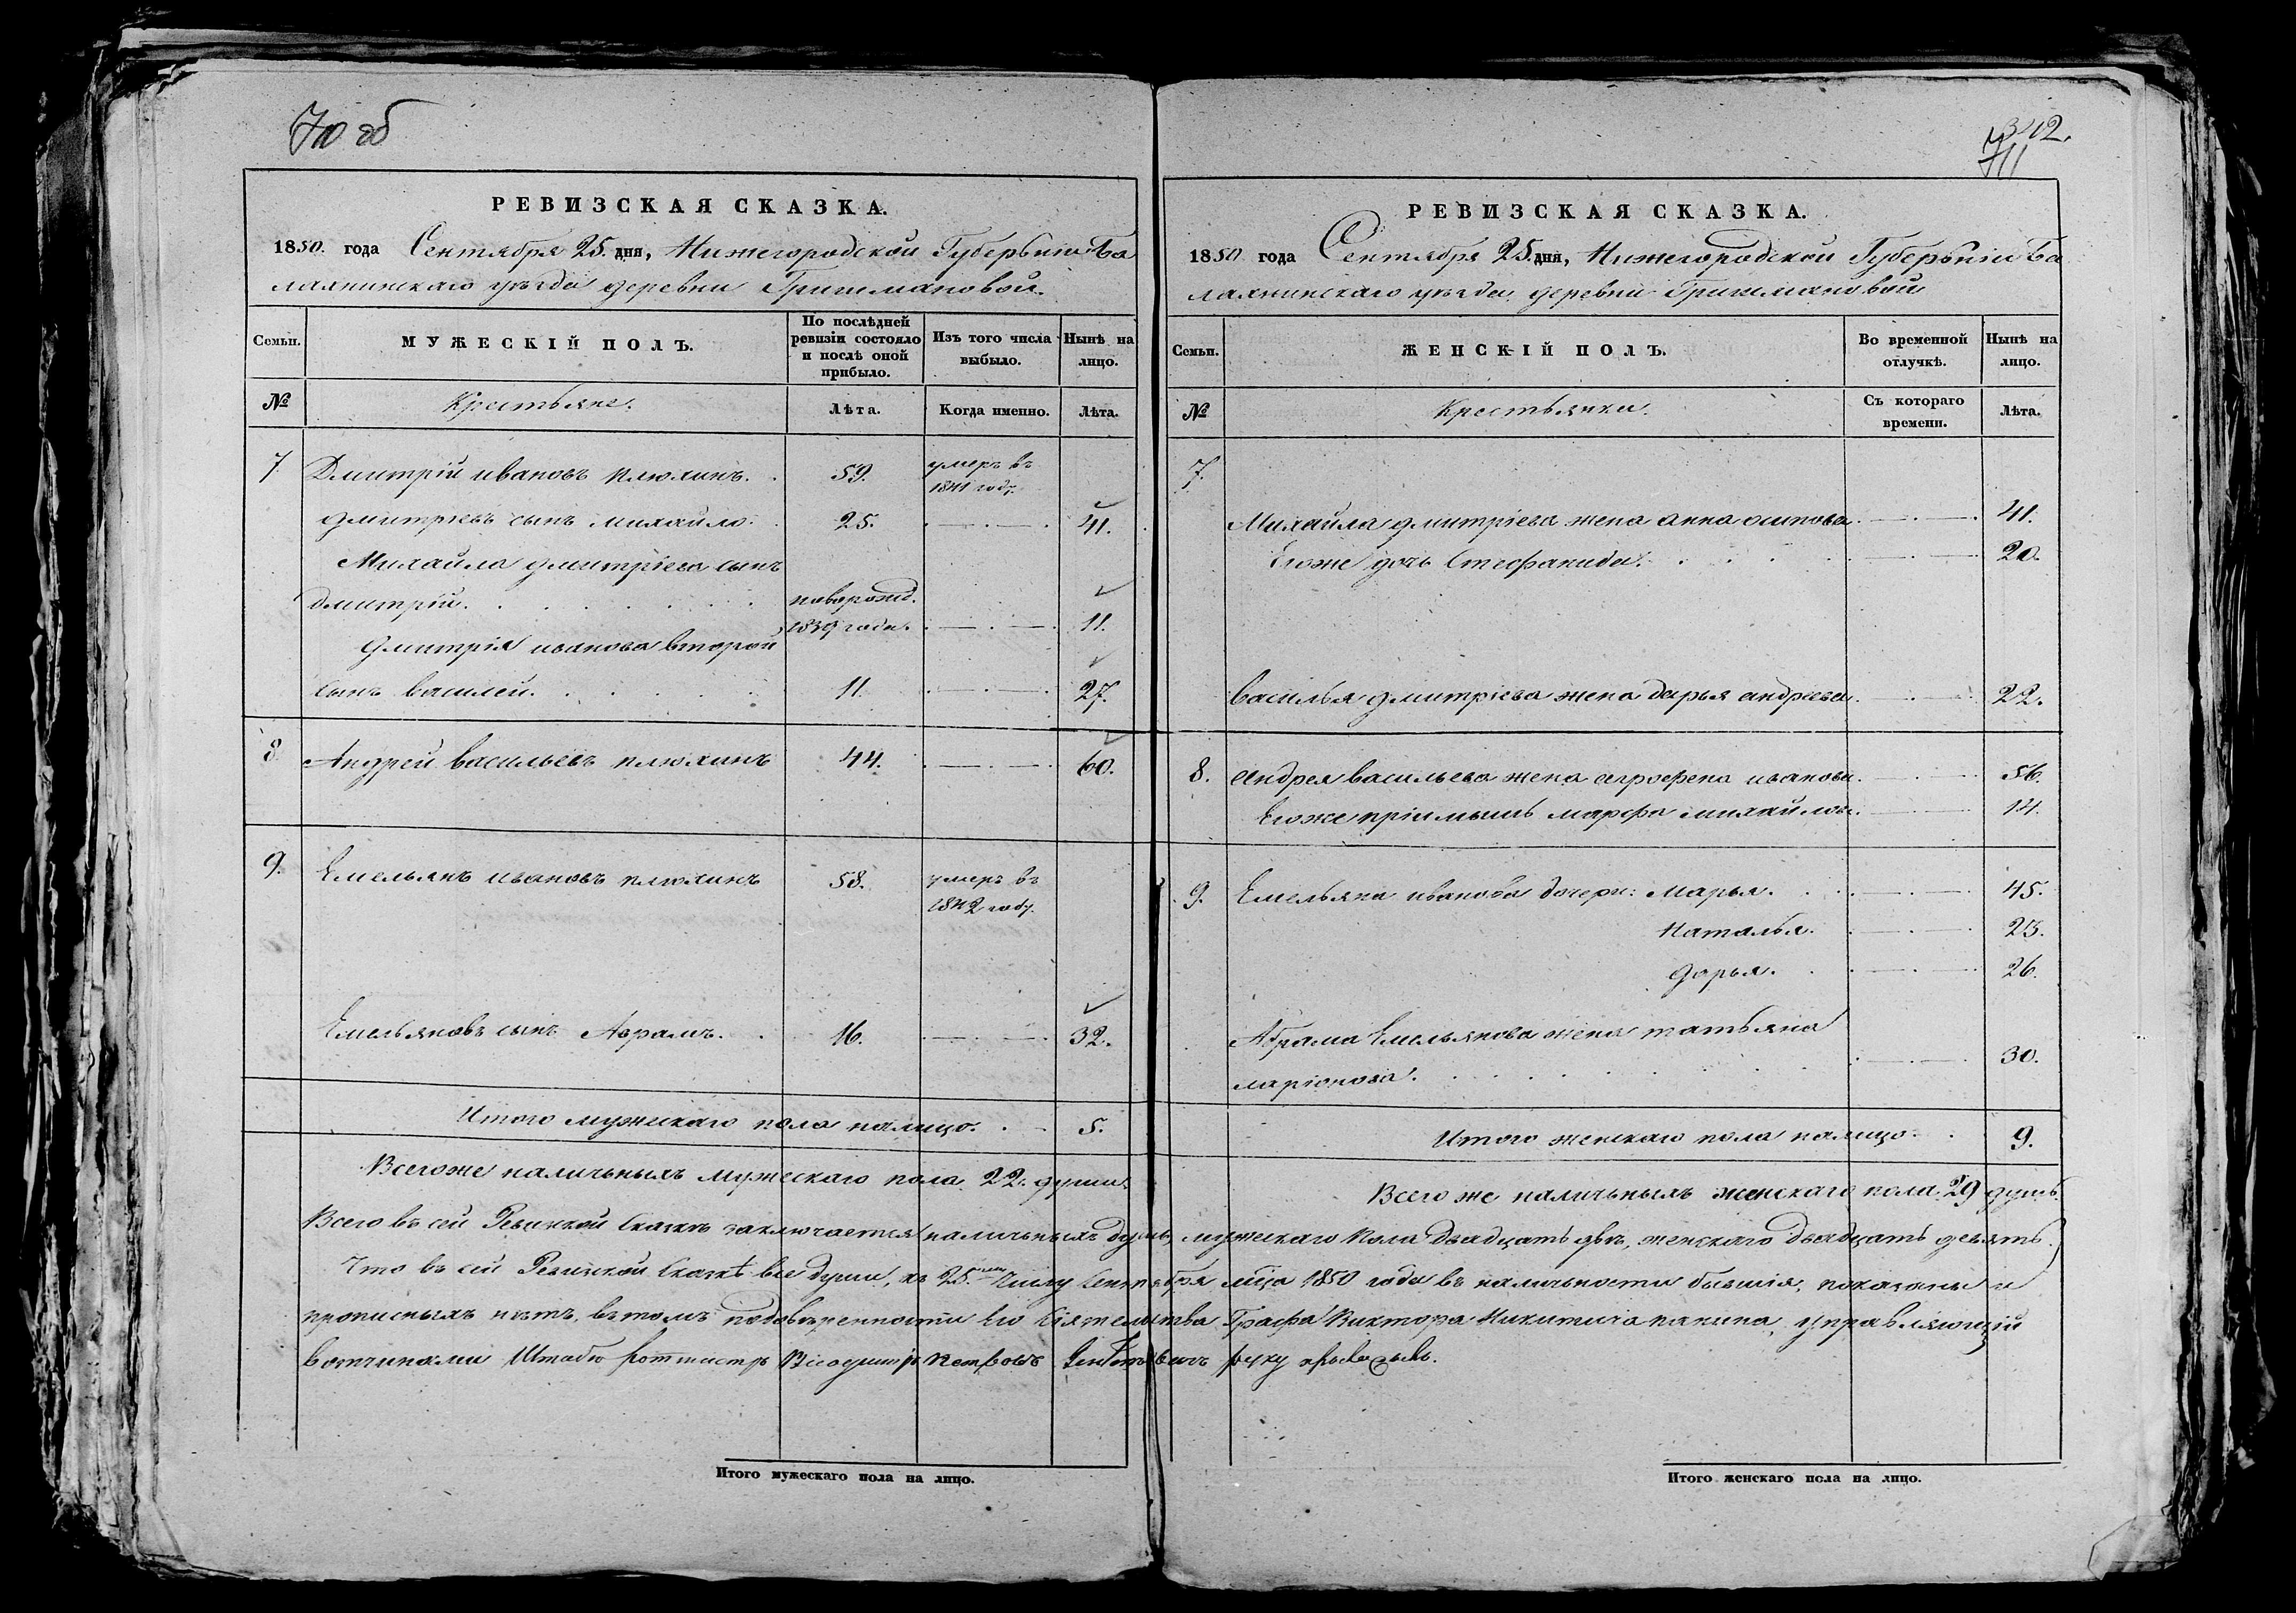 70 об
РЕВИЗСКАЯ СКАЗКА.
1850. года Сентября 25. дня, Нижегородской Губерьніи Ба
лахнинскаго уѣзда деревни Гришмановой.
Семьи.
МУЖЕСКІЙ ПОЛЪ.
По послѣдней ревизіи состояло и послѣ оной прибыло.
Изъ того числа выбыло.
Нынѣ на лицо.
№
Крестьяне.
Лѣта.
Когда именно.
Лѣта.
7 Дмитрій ивановъ Плюхинъ. 59. умеръ въ
1841 году.
Дмитріевъ сынъ михайло. 25. 41.
Михайла дмитріева сынъ
дмитрій. новорожд. 11.
1839 года.
Дмитрія иванова второй
сынъ василей. 11. 27.
8 Андрей васильевъ плюхинъ 44. 60.
9. Емельянъ ивановъ плюхинъ 58. умеръ въ
1842 году.
Емельяновъ сынъ Аврамъ. 16. 32.
Итого мужескаго пола налицо. 5.
Всегоже наличьныхъ мужескаго пола 22. души.
342.
71
РЕВИЗСКАЯ СКАЗКА.
1850 года Сентября 25 дня, Нижегородской Губерьніи Ба
лахнинскаго уѣзда, деревни Гришмановой
Семьи.
ЖЕНСКІЙ ПОЛЪ.
Во временной отлучкѣ.
Нынѣ на лицо.
№
Крестьянки.
Съ котораго времени.
Лѣта.
7.
Михайла дмитріева жена анна осипова. 41.
Егоже дочь Стефанида. 20.
василья дмитріева жена дарья андреева. 22.
8. Андрея васильева жена агрофена иванова. 56.
Егоже пріимышь марфа михайлова. 14.
9. Емельяна иванова дочери: Марья. 45.
Наталья. 23.
Дарья. 26.
Абрама Емельянова жена татьяна
ларіонова. 30.
Итого женскаго пола налицо. 9.
Всего же наличьныхъ женскаго пола. 29 душь.
Всего въ сей Ревизкой Сказкѣ заключается наличьныхъ душь, мужескаго Пола двадцать двѣ, женскаго двадцать девять.
Что въ сей Ревизкой Сказкѣ все души, къ 25. числу Сентября мѣца 1850 года въ наличьности бывшія, показаны и
прописныхъ нѣтъ, въ томъ по довѣренности Его Сіятельства Графа Виктора Никитича панина, управляющій
вотчинами Штабъ ротмистръ Петровъ руку
Итого мужескаго пола на лицо.
Итого женскаго пола на лицо.